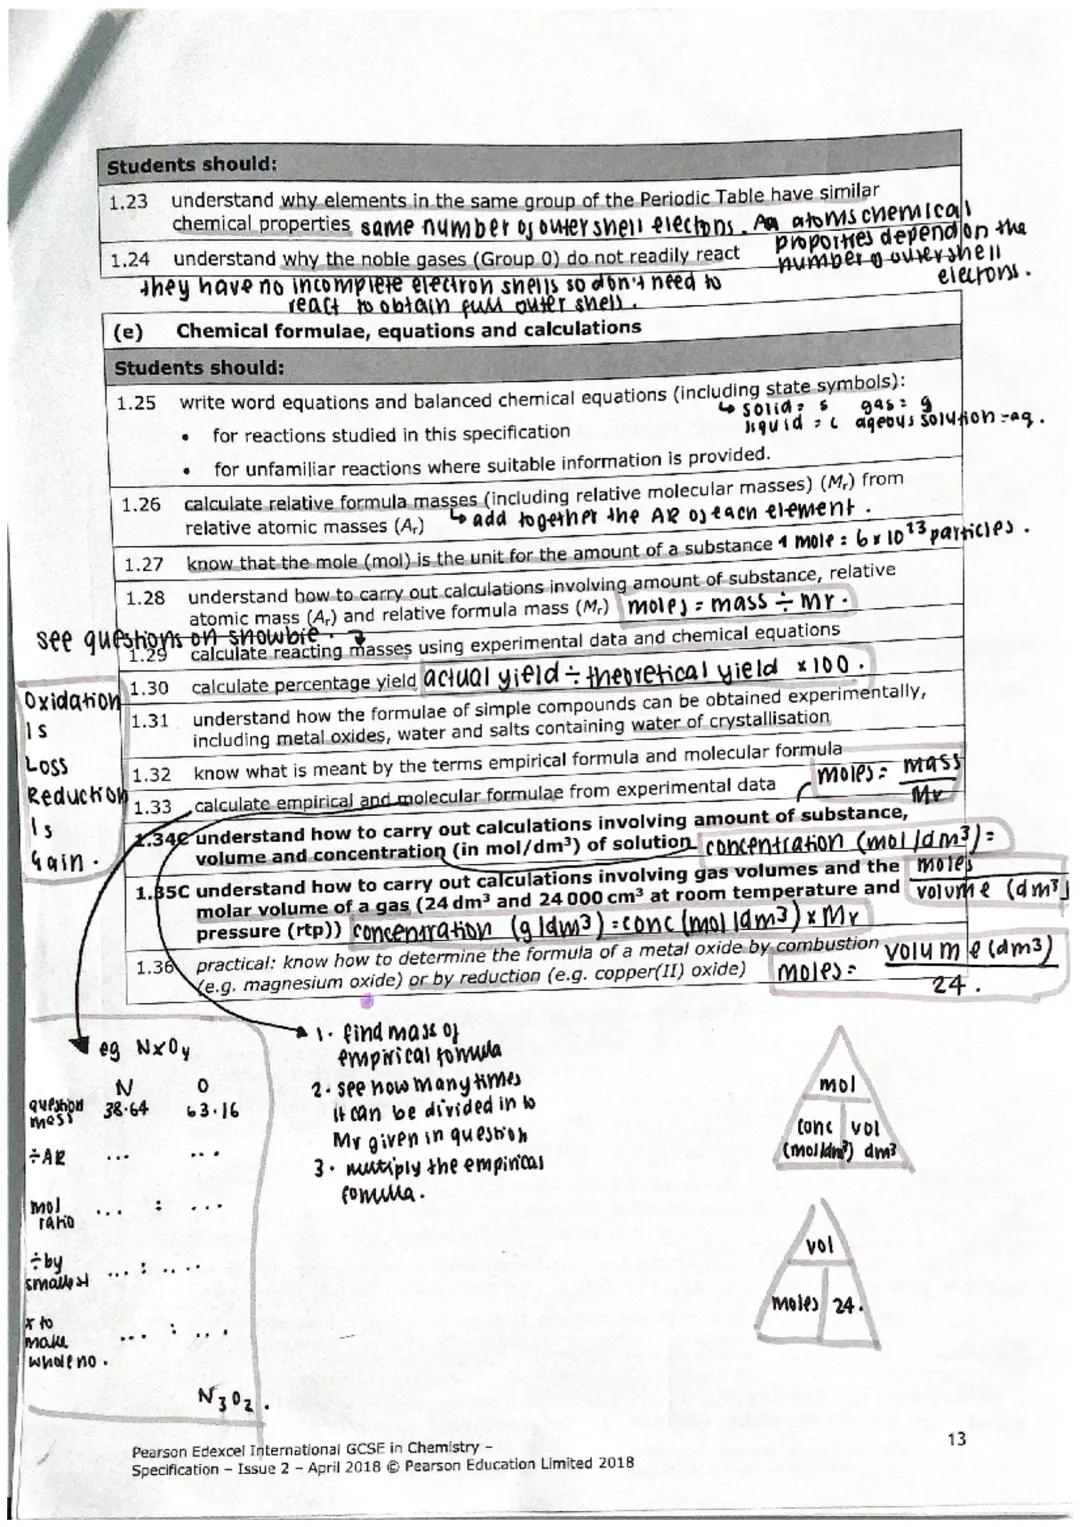 Students should:
1.23 understand why elements in the same group of the Periodic Table have similar
chemical properties same number of outer shell electons. An atoms chemical
proporties depend on the
1.24 understand why the noble gases (Group 0) do not readily react number of outershell
they have no incomplete electron shells so don't need to elections.
react to obtain full outer shell.
(e) Chemical formulae, equations and calculations
Students should:
1.25 write word equations and balanced chemical equations (including state symbols):
↳ solid = s gas = g
• for reactions studied in this specification liquid = l aqeous solution = aq.
• for unfamiliar reactions where suitable information is provided.
1.26 calculate relative formula masses (including relative molecular masses) (Mr) from
relative atomic masses (Ar) ↳ add together the AR of each element.
1.27 know that the mole (mol) is the unit for the amount of a substance 1 mole = 6 x 10¹³ particles.
1.28 understand how to carry out calculations involving amount of substance, relative
atomic mass (Ar) and relative formula mass (Mr) moles = mass ÷ Mr.
see questions on showbie.
1.29 calculate reacting masses using experimental data and chemical equations
1.30 calculate percentage yield actual yield ÷ theoretical yield x 100.
1.31 understand how the formulae of simple compounds can be obtained experimentally,
including metal oxides, water and salts containing water of crystallisation
1.32 know what is meant by the terms empirical formula and molecular formula
1.33 calculate empirical and molecular formulae from experimental data
moles = mass
Mr
1.34C understand how to carry out calculations involving amount of substance,
volume and concentration (in mol/dm³) of solution concentration (mol/dm³) =
moles
volume (dm³)
1.35C understand how to carry out calculations involving gas volumes and the
molar volume of a gas (24 dm³ and 24 000 cm³ at room temperature and
pressure (rtp)) concentration (g/dm³) = conc (mol/dm³) x Mr
1.36 practical: know how to determine the formula of a metal oxide by combustion
(e.g. magnesium oxide) or by reduction (e.g. copper(II) oxide)
moles = volume (dm³)
24.
Oxidation
Is
Loss
Reduction
Is
Gain.
eg NxOy
N O
question
mass 38.64 63.16
÷AR ... ...
mol
ratio ... : ...
÷by
smallest ... : ....
x to
make
whole no. ... : ...
N3O2.
1. find mass of
empirical fomula
2. see how many times
it can be divided in to
Mr given in question
3. multiply the empirical
fomulla.
mol
conc vol
(mol/dm³) dm³
vol
moles 24.
Pearson Edexcel International GCSE in Chemistry –
Specification – Issue 2 – April 2018 © Pearson Education Limited 2018
13